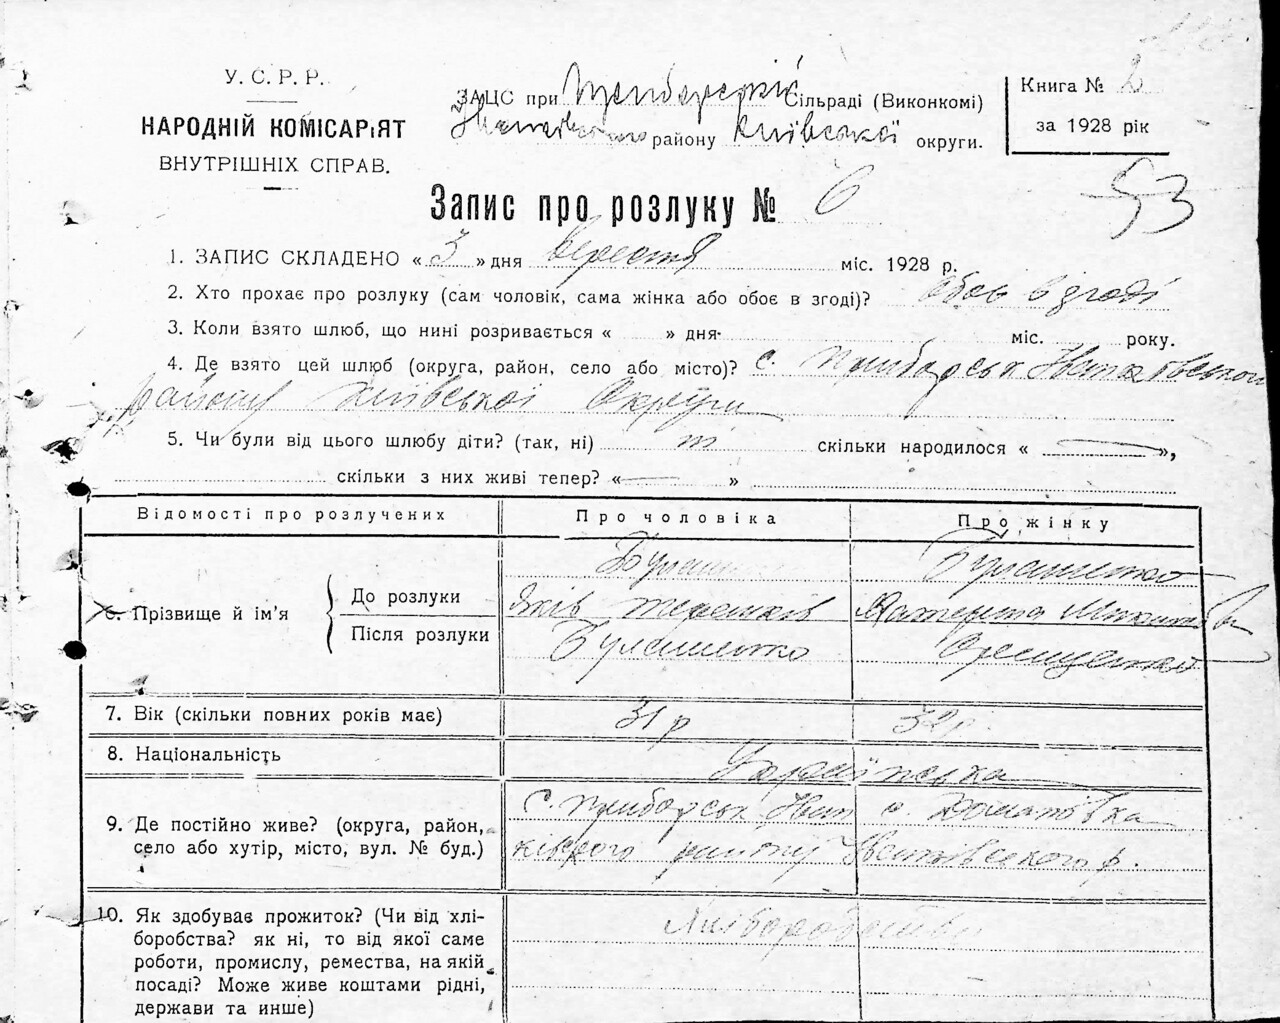 У. С. Р. Р.
НАРОДНІЙ КОМІСАРІЯТ
ВНУТРІШНІХ СПРАВ.
ЗАЦС при Прибарській Сільраді (Виконкомі)
району Київської округи.
Книга № 2
за 1928 рік
53
Запис про розлуку № 6
1. ЗАПИС СКЛАДЕНО « 3 » дня Вересня міс. 1928 р.
2. Хто прохає про розлуку (сам чоловік, сама жінка або обоє в згоді)? обоє в згоді
3. Коли взято шлюб, що нині розривається « » дня міс. року.
4. Де взято цей шлюб (округа, район, село або місто)? с. Прибарськ
району Київської Округи
5. Чи були від цього шлюбу діти? (так, ні) ні скільки народилося « — »,
скільки з них живі тепер? « — »
Відомості про розлучених Про чоловіка Про жінку
6. Прізвище й ім'я
До розлуки
Яків
Після розлуки
7. Вік (скільки повних років має) 31 р 32 р.
8. Національність Українська
9. Де постійно живе? (округа, район, село або хутір, місто, вул. № буд.)
с. Прибарськ с.
району р.
10. Як здобуває прожиток? (Чи від хлі-
боробства? як ні, то від якої саме
роботи, промислу, ремества, на якій
посаді? Може живе коштами рідні,
держави та инше)